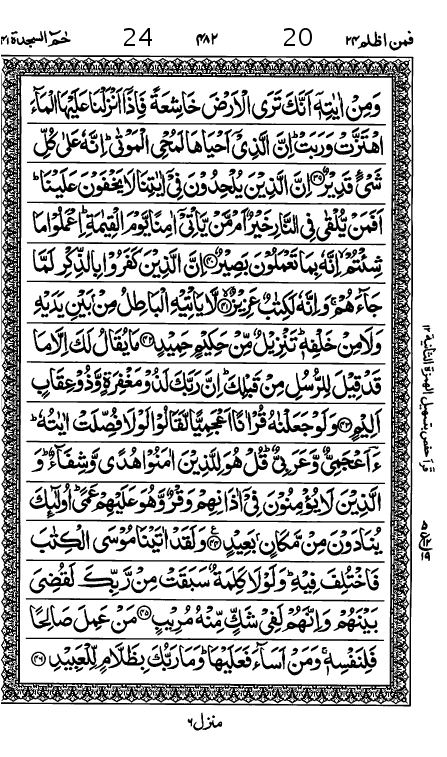 فمن اظلم ٢٤ 20 ٤٨٢ 24 حٰمٓ السجدة ٤١
وَمِنْ اٰيٰتِهٖۤ اَنَّكَ تَرَى الْاَرْضَ خَاشِعَةً فَاِذَاۤ اَنْزَلْنَا عَلَيْهَا الْمَآءَ
اهْتَزَّتْ وَرَبَتْ ؕ اِنَّ الَّذِيْۤ اَحْيَاهَا لَمُحْيِ الْمَوْتٰى ؕ اِنَّهٗ عَلٰى كُلِّ
شَيْءٍ قَدِيْرٌ ﴿٣٩﴾ اِنَّ الَّذِيْنَ يُلْحِدُوْنَ فِيْۤ اٰيٰتِنَا لَا يَخْفَوْنَ عَلَيْنَا ؕ
اَفَمَنْ يُّلْقٰى فِي النَّارِ خَيْرٌ اَمْ مَّنْ يَّاْتِيْۤ اٰمِنًا يَّوْمَ الْقِيٰمَةِ ؕ اِعْمَلُوْا مَا
شِئْتُمْ ۙ اِنَّهٗ بِمَا تَعْمَلُوْنَ بَصِيْرٌ ﴿٤٠﴾ اِنَّ الَّذِيْنَ كَفَرُوْا بِالذِّكْرِ لَمَّا
جَآءَهُمْ ۚ وَاِنَّهٗ لَكِتٰبٌ عَزِيْزٌ ﴿٤١﴾ لَّا يَاْتِيْهِ الْبَاطِلُ مِنْۢ بَيْنِ يَدَيْهِ
وَلَا مِنْ خَلْفِهٖ ؕ تَنْزِيْلٌ مِّنْ حَكِيْمٍ حَمِيْدٍ ﴿٤٢﴾ مَا يُقَالُ لَكَ اِلَّا مَا
قَدْ قِيْلَ لِلرُّسُلِ مِنْ قَبْلِكَ ؕ اِنَّ رَبَّكَ لَذُوْ مَغْفِرَةٍ وَّذُوْ عِقَابٍ
اَلِيْمٍ ﴿٤٣﴾ وَلَوْ جَعَلْنٰهُ قُرْاٰنًا اَعْجَمِيًّا لَّقَالُوْا لَوْلَا فُصِّلَتْ اٰيٰتُهٗ ؕ
ءَاَعْجَمِيٌّ وَّعَرَبِيٌّ ؕ قُلْ هُوَ لِلَّذِيْنَ اٰمَنُوْا هُدًى وَّشِفَآءٌ ؕ وَ
الَّذِيْنَ لَا يُؤْمِنُوْنَ فِيْۤ اٰذَانِهِمْ وَقْرٌ وَّهُوَ عَلَيْهِمْ عَمًى ؕ اُولٰٓئِكَ
يُنَادَوْنَ مِنْ مَّكَانٍۭ بَعِيْدٍ ﴿٤٤﴾ وَلَقَدْ اٰتَيْنَا مُوْسَى الْكِتٰبَ
فَاخْتُلِفَ فِيْهِ ؕ وَلَوْلَا كَلِمَةٌ سَبَقَتْ مِنْ رَّبِّكَ لَقُضِيَ
بَيْنَهُمْ ؕ وَاِنَّهُمْ لَفِيْ شَكٍّ مِّنْهُ مُرِيْبٍ ﴿٤٥﴾ مَنْ عَمِلَ صَالِحًا
فَلِنَفْسِهٖ ۚ وَمَنْ اَسَآءَ فَعَلَيْهَا ؕ وَمَا رَبُّكَ بِظَلَّامٍ لِّلْعَبِيْدِ ﴿٤٦﴾
منزل ٦
قرأ حفص بتسهيل الهمزة الثانية ١٢